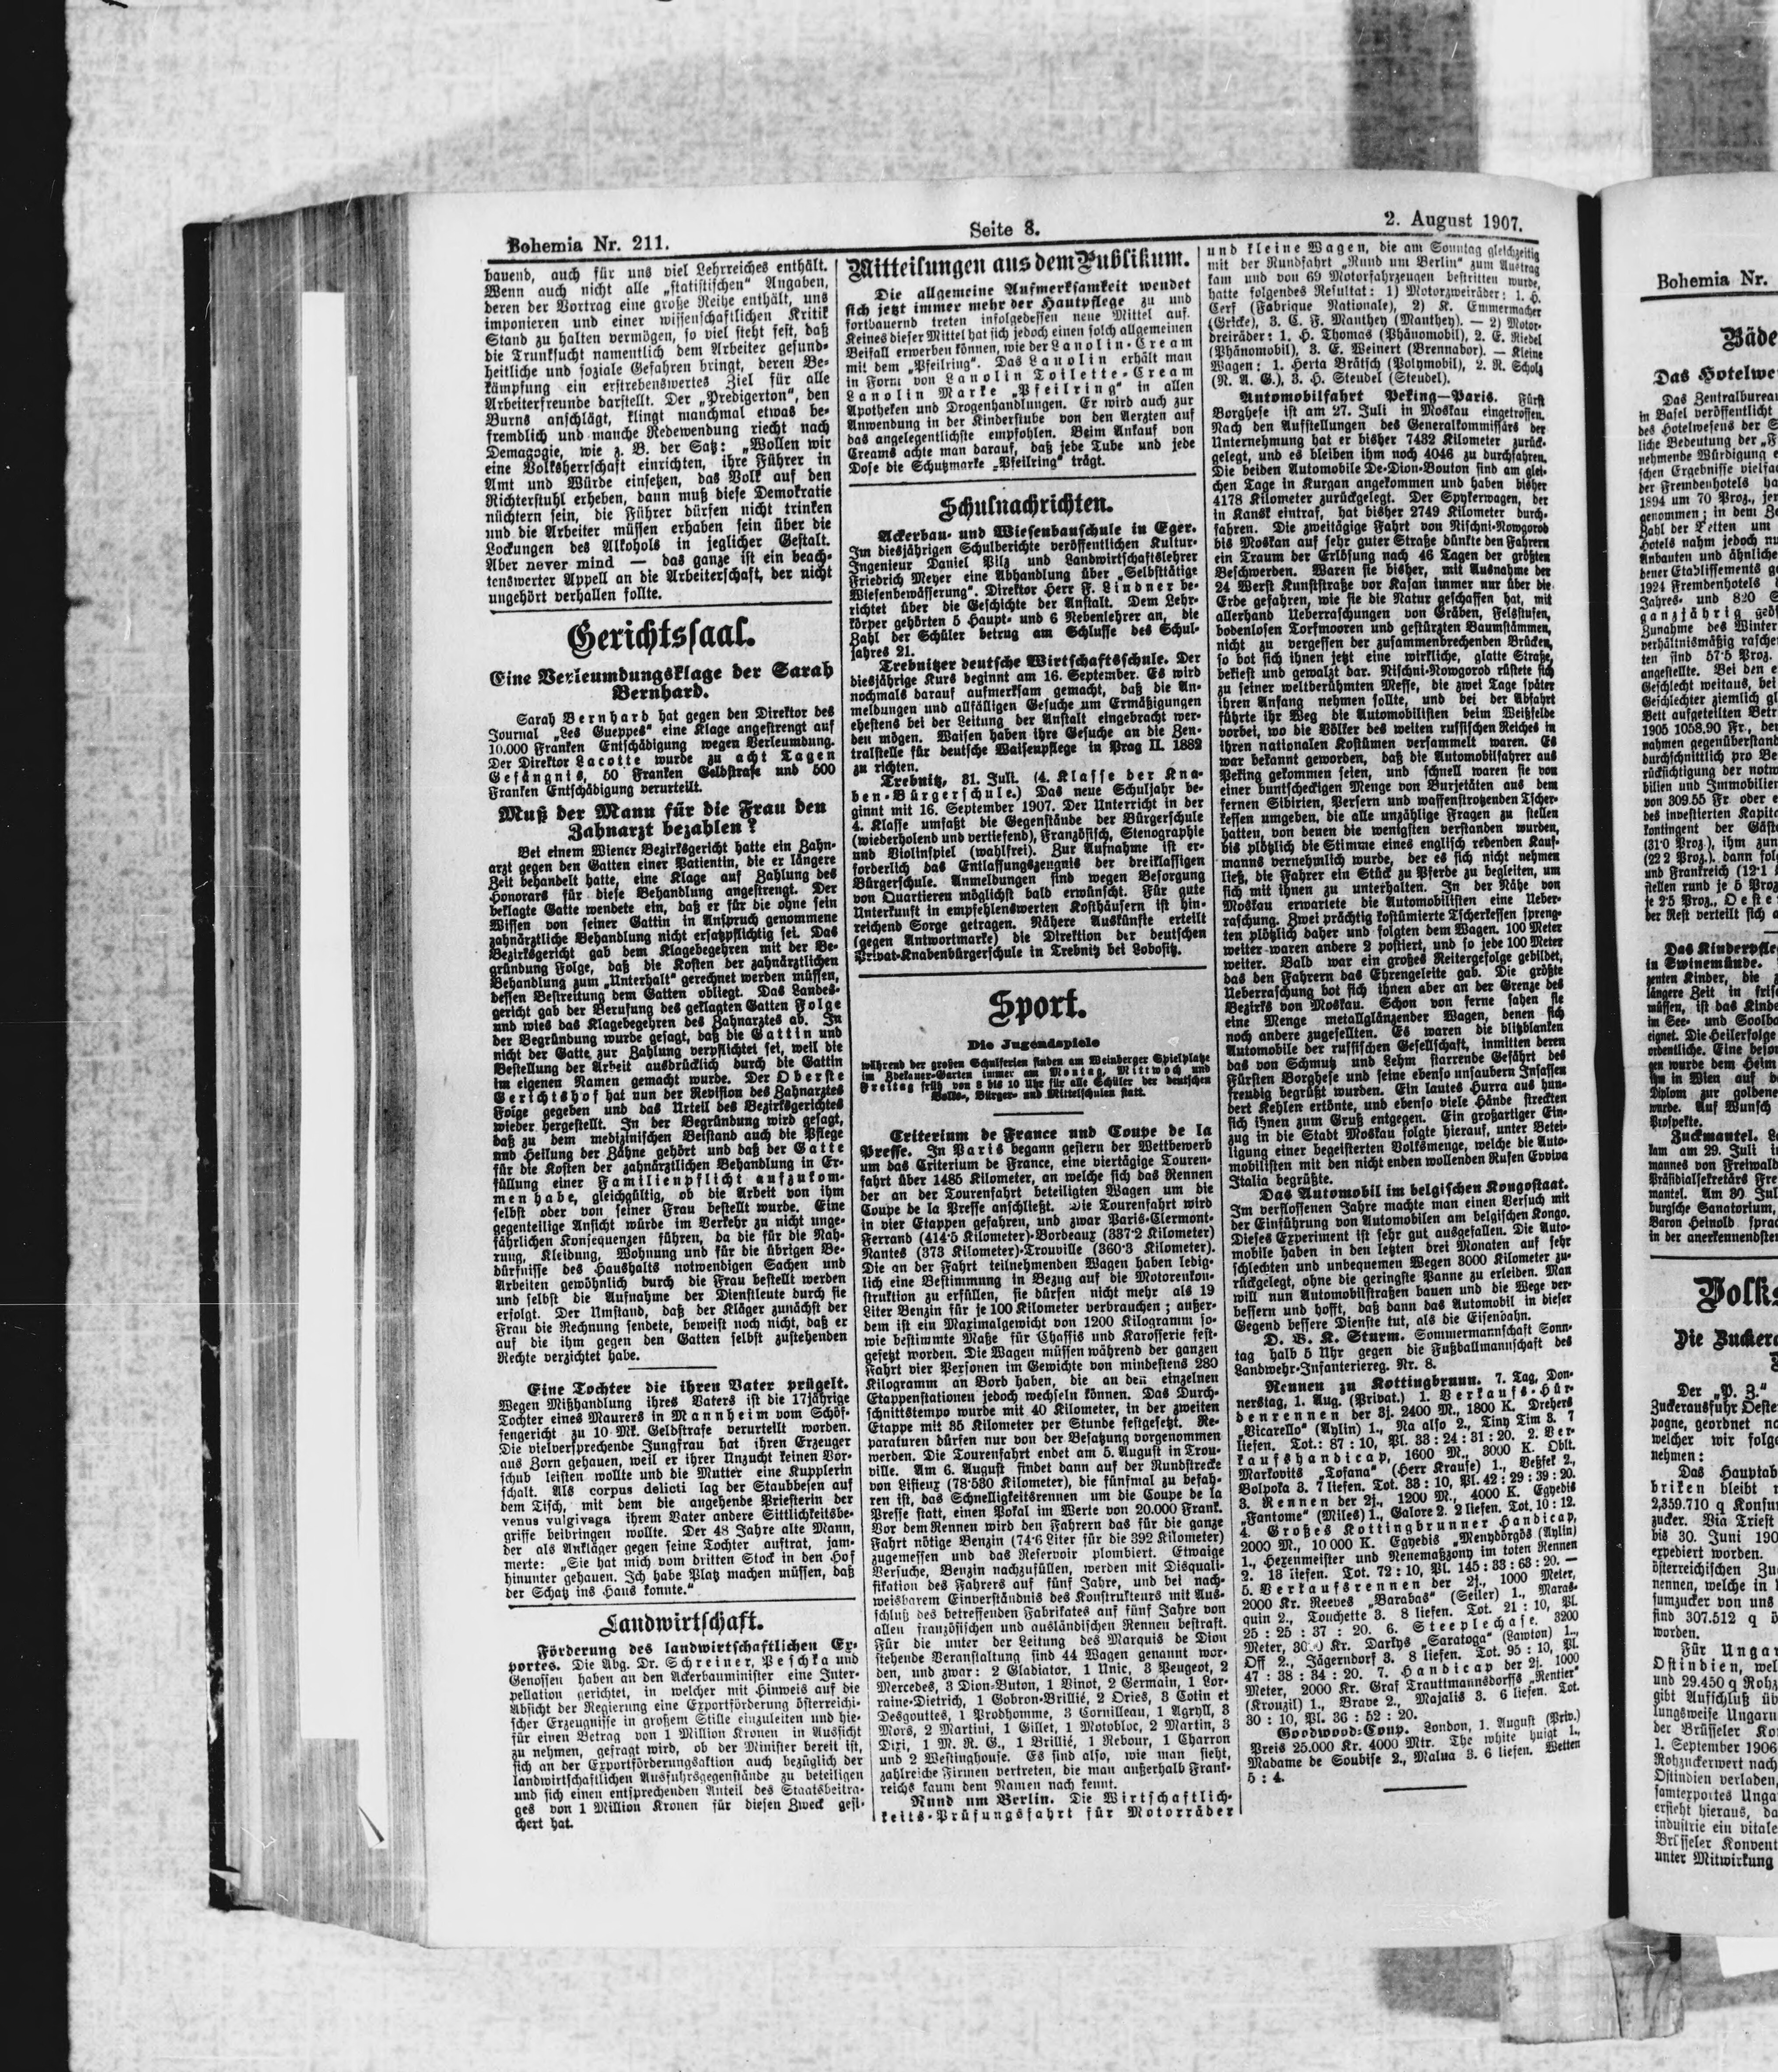 Bohemia Nr. 211.
Seite 8.
2. August 1907.
bauend, auch für uns viel Lehrreiches enthält.
Wenn auch nicht alle „statistischen“ Angaben,
deren der Vortrag eine große Reihe enthält, uns
imponieren und einer wissenschaftlichen Kritik
Stand zu halten vermögen, so viel steht fest, daß
die Trunksucht namentlich dem Arbeiter gesund-
heitliche und soziale Gefahren bringt, deren Be-
kämpfung ein erstrebenswertes Ziel für alle
Arbeiterfreunde darstellt. Der „Predigerton“, den
Burns anschlägt, klingt manchmal etwas be-
fremdlich und manche Redewendung riecht nach
Demagogie, wie z. B. der Satz: „Wollen wir
eine Volksherrschaft einrichten, ihre Führer in
Amt und Würde einsetzen, das Volk auf den
Richterstuhl erheben, dann muß diese Demokratie
nüchtern sein, die Führer dürfen nicht trinken
und die Arbeiter müssen erhaben sein über die
Lockungen des Alkohols in jeglicher Gestalt.
Aber never mind — das ganze ist ein beach-
tenswerter Appell an die Arbeiterschaft, der nicht
ungehört verhallen sollte.
Gerichtssaal.
Eine Verleumdungsklage der Sarah
Bernhard.
Sarah Bernhard hat gegen den Direktor des
Journal „Les Gueppes“ eine Klage angestrengt auf
10.000 Franken Entschädigung wegen Verleumdung.
Der Direktor Lacotte wurde zu acht Tagen
Gefängnis, 50 Franken Geldstrafe und 500
Franken Entschädigung verurteilt.
Muß der Mann für die Frau den
Zahnarzt bezahlen?
Bei einem Wiener Bezirksgericht hatte ein Zahn-
arzt gegen den Gatten einer Patientin, die er längere
Zeit behandelt hatte, eine Klage auf Zahlung des
Honorars für diese Behandlung angestrengt. Der
beklagte Gatte wendete ein, daß er für die ohne sein
Wissen von seiner Gattin in Anspruch genommene
zahnärztliche Behandlung nicht ersatzpflichtig sei. Das
Bezirksgericht gab dem Klagebegehren mit der Be-
gründung Folge, daß die Kosten der zahnärztlichen
Behandlung zum „Unterhalt“ gerechnet werden müssen,
dessen Bestreitung dem Gatten obliegt. Das Landes-
gericht gab der Berufung des geklagten Gatten Folge
und wies das Klagebegehren des Zahnarztes ab. In
der Begründung wurde gesagt, daß die Gattin und
nicht der Gatte zur Zahlung verpflichtet sei, weil die
Bestellung der Arbeit ausdrücklich durch die Gattin
im eigenen Namen gemacht wurde. Der Oberste
Gerichtshof hat nun der Revision des Zahnarztes
Folge gegeben und das Urteil des Bezirksgerichtes
wieder hergestellt. In der Begründung wird gesagt,
daß zu dem medizinischen Beistand auch die Pflege
und Heilung der Zähne gehört und daß der Gatte
für die Kosten der zahnärztlichen Behandlung in Er-
füllung einer Familienpflicht aufzukom-
men habe, gleichgültig, ob die Arbeit von ihm
selbst oder von seiner Frau bestellt wurde. Eine
gegenteilige Ansicht würde im Verkehr zu nicht unge-
fährlichen Konsequenzen führen, da die für die Nah-
rung, Kleidung, Wohnung und für die übrigen Be-
dürfnisse des Haushalts notwendigen Sachen und
Arbeiten gewöhnlich durch die Frau bestellt werden
und selbst die Aufnahme der Dienstleute durch sie
erfolgt. Der Umstand, daß der Kläger zunächst der
Frau die Rechnung sendete, beweist noch nicht, daß er
auf die ihm gegen den Gatten selbst zustehenden
Rechte verzichtet habe.
Eine Tochter die ihren Vater prügelt.
Wegen Mißhandlung ihres Vaters ist die 17jährige
Tochter eines Maurers in Mannheim vom Schöf-
fengericht zu 10 Mk. Geldstrafe verurteilt worden.
Die vielversprechende Jungfrau hat ihren Erzeuger
aus Zorn gehauen, weil er ihrer Unzucht keinen Vor-
schub leisten wollte und die Mutter eine Kupplerin
schalt. Als corpus delicti lag der Staubbesen auf
dem Tisch, mit dem die angehende Priesterin der
venus vulgivaga ihrem Vater andere Sittlichkeitsbe-
griffe beibringen wollte. Der 48 Jahre alte Mann,
der als Ankläger gegen seine Tochter auftrat, jam-
merte: „Sie hat mich vom dritten Stock in den Hof
hinunter gehauen. Ich habe Platz machen müssen, daß
der Schatz ins Haus konnte.“
Landwirtschaft.
Förderung des landwirtschaftlichen Ex-
portes. Die Abg. Dr. Schreiner, Peschka und
Genossen haben an den Ackerbauminister eine Inter-
pellation gerichtet, in welcher mit Hinweis auf die
Absicht der Regierung eine Exportförderung österreichi-
scher Erzeugnisse in großem Stille einzuleiten und hie-
für einen Betrag von 1 Million Kronen in Aussicht
zu nehmen, gefragt wird, ob der Minister bereit ist,
sich an der Exportförderungsaktion auch bezüglich der
landwirtschaftlichen Ausfuhrsgegenstände zu beteiligen
und sich einen entsprechenden Anteil des Staatsbeitra-
ges von 1 Million Kronen für diesen Zweck gesi-
chert hat.
Mitteilungen aus dem Publikum.
Die allgemeine Aufmerksamkeit wendet
sich jetzt immer mehr der Hautpflege zu und
fortdauernd treten infolgedessen neue Mittel auf.
Keines dieser Mittel hat sich jedoch einen solch allgemeinen
Beifall erwerben können, wie der Lanolin-Cream
mit dem „Pfeilring“. Das Lanolin erhält man
in Form von Lanolin Toilette-Cream
Lanolin Marke „Pfeilring“ in allen
Apotheken und Drogenhandlungen. Er wird auch zur
Anwendung in der Kinderstube von den Aerzten auf
das angelegentlichste empfohlen. Beim Ankauf von
Creams achte man darauf, daß jede Tube und jede
Dose die Schutzmarke „Pfeilring“ trägt.
Schulnachrichten.
Ackerbau- und Wiesenbauschule in Eger.
Im diesjährigen Schulberichte veröffentlichen Kultur-
Ingenieur Daniel Pilz und Landwirtschaftslehrer
Friedrich Meyer eine Abhandlung über „Selbsttätige
Wiesenbewässerung“. Direktor Herr F. Lindner be-
richtet über die Geschichte der Anstalt. Dem Lehr-
körper gehörten 5 Haupt- und 6 Nebenlehrer an, die
Zahl der Schüler betrug am Schlusse des Schul-
jahres 21.
Trebnitzer deutsche Wirtschaftsschule. Der
diesjährige Kurs beginnt am 16. September. Es wird
nochmals darauf aufmerksam gemacht, daß die An-
meldungen und allfälligen Gesuche um Ermäßigungen
ehestens bei der Leitung der Anstalt eingebracht wer-
den mögen. Waisen haben ihre Gesuche an die Zen-
tralstelle für deutsche Waisenpflege in Prag II. 1882
zu richten.
Trebnitz, 31. Juli. (4. Klasse der Kna-
ben-Bürgerschule.) Das neue Schuljahr be-
ginnt mit 16. September 1907. Der Unterricht in der
4. Klasse umfaßt die Gegenstände der Bürgerschule
(wiederholend und vertiefend), Französisch, Stenographie
und Violinspiel (wahlfrei). Zur Aufnahme ist er-
forderlich das Entlassungszeugnis der dreiklassigen
Bürgerschule. Anmeldungen sind wegen Besorgung
von Quartieren möglichst bald erwünscht. Für gute
Unterkunft in empfehlenswerten Kosthäusern ist hin-
reichend Sorge getragen. Nähere Auskünfte erteilt
(gegen Antwortmarke) die Direktion der deutschen
Privat-Knabenbürgerschule in Trebnitz bei Lobositz.
Sport.
Die Jugendspiele
während der großen Schulferien finden am Weinberger Spielplatze
im Zdekauer-Garten immer am Montag, Mittwoch und
Freitag früh von 8 bis 10 Uhr für alle Schüler der deutschen
Volks-, Bürger- und Mittelschulen statt.
Criterium de France und Coupe de la
Presse. In Paris begann gestern der Wettbewerb
um das Criterium de France, eine viertägige Touren-
fahrt über 1485 Kilometer, an welche sich das Rennen
der an der Tourenfahrt beteiligten Wagen um die
Coupe de la Presse anschließt. Die Tourenfahrt wird
in vier Etappen gefahren, und zwar Paris-Clermont-
Ferrand (414·5 Kilometer)-Bordeaux (337·2 Kilometer)
Nantes (373 Kilometer)-Trouville (360·3 Kilometer).
Die an der Fahrt teilnehmenden Wagen haben ledig-
lich eine Bestimmung in Bezug auf die Motorenkon-
struktion zu erfüllen, sie dürfen nicht mehr als 19
Liter Benzin für je 100 Kilometer verbrauchen; außer-
dem ist ein Maximalgewicht von 1200 Kilogramm so-
wie bestimmte Maße für Chassis und Karosserie fest-
gesetzt worden. Die Wagen müssen während der ganzen
Fahrt vier Personen im Gewichte von mindestens 280
Kilogramm an Bord haben, die an den einzelnen
Etappenstationen jedoch wechseln können. Das Durch-
schnittstempo wurde mit 40 Kilometer, in der zweiten
Etappe mit 35 Kilometer per Stunde festgesetzt. Re-
paraturen dürfen nur von der Besatzung vorgenommen
werden. Die Tourenfahrt endet am 5. August in Trou-
ville. Am 6. August findet dann auf der Rundstrecke
von Lisieux (78·530 Kilometer), die fünfmal zu befah-
ren ist, das Schnelligkeitsrennen um die Coupe de la
Presse statt, einen Pokal im Werte von 20.000 Frank.
Vor dem Rennen wird den Fahrern das für die ganze
Fahrt nötige Benzin (74·6 Liter für die 392 Kilometer)
zugemessen und das Reservoir plombiert. Etwaige
Versuche, Benzin nachzufüllen, werden mit Disquali-
fikation des Fahrers auf fünf Jahre, und bei nach-
weisbarem Einverständnis des Konstrukteurs mit Aus-
schluß des betreffenden Fabrikates auf fünf Jahre von
allen französischen und ausländischen Rennen bestraft.
Für die unter der Leitung des Marquis de Dion
stehende Veranstaltung sind 44 Wagen genannt wor-
den, und zwar: 2 Gladiator, 1 Unic, 3 Peugeot, 2
Mercedes, 3 Dion-Buton, 1 Vinot, 2 Germain, 1 Lor-
raine-Dietrich, 1 Gobron-Brillié, 2 Ories, 3 Cotin et
Desgouttes, 1 Prodhomme, 3 Cornilleau, 1 Agryll, 3
Mors, 2 Martini, 1 Gillet, 1 Motobloc, 2 Martin, 3
Dixi, 1 M. R. G., 1 Brillié, 1 Rebour, 1 Charron
und 2 Westinghouse. Es sind also, wie man sieht,
zahlreiche Firmen vertreten, die man außerhalb Frank-
reichs kaum dem Namen nach kennt.
Rund um Berlin. Die Wirtschaftlich-
keits-Prüfungsfahrt für Motorräder
und kleine Wagen, die am Sonntag gleichzeitig
mit der Rundfahrt „Rund um Berlin“ zum Austrag
kam und von 69 Motorfahrzeugen bestritten wurde,
hatte folgendes Resultat: 1) Motorzweiräder: 1. H.
Cerf (Fabrique Nationale), 2) K. Emmermacher
(Gricke), 3. C. F. Manthey (Manthey). — 2) Motor-
dreiräder: 1. H. Thomas (Phänomobil), 2. E. Riedel
(Phänomobil), 3. E. Weinert (Brennabor). — Kleine
Wagen: 1. Herta Brätsch (Polymobil), 2. R. Scholz
(N. A. G.), 3. H. Steudel (Steudel).
Automobilfahrt Peking—Paris. Fürst
Borghese ist am 27. Juli in Moskau eingetroffen.
Nach den Aufstellungen des Generalkommissärs der
Unternehmung hat er bisher 7432 Kilometer zurück-
gelegt, und es bleiben ihm noch 4046 zu durchfahren.
Die beiden Automobile De-Dion-Bouton sind am glei-
chen Tage in Kurgan angekommen und haben bisher
4178 Kilometer zurückgelegt. Der Spykerwagen, der
in Kansk eintraf, hat bisher 2749 Kilometer durch-
fahren. Die zweitägige Fahrt von Nischni-Nowgorod
bis Moskau auf sehr guter Straße dünkte den Fahrern
ein Traum der Erlösung nach 46 Tagen der größten
Beschwerden. Waren sie bisher, mit Ausnahme der
24 Werst Kunststraße vor Kasan immer nur über die
Erde gefahren, wie sie die Natur geschaffen hat, mit
allerhand Ueberraschungen von Gräben, Felsstufen,
bodenlosen Torfmooren und gestürzten Baumstämmen,
nicht zu vergessen der zusammenbrechenden Brücken,
so bot sich ihnen jetzt eine wirkliche, glatte Straße,
bekiest und gewalzt dar. Nischni-Nowgorod rüstete sich
zu seiner weltberühmten Messe, die zwei Tage später
ihren Anfang nehmen sollte, und bei der Abfahrt
führte ihr Weg die Automobilisten beim Weißfelde
vorbei, wo die Völker des weiten russischen Reiches in
ihren nationalen Kostümen versammelt waren. Es
war bekannt geworden, daß die Automobilfahrer aus
Peking gekommen seien, und schnell waren sie von
einer buntscheckigen Menge von Burjetäten aus dem
fernen Sibirien, Persern und waffenstrotzenden Tscher-
kessen umgeben, die alle unzählige Fragen zu stellen
hatten, von denen die wenigsten verstanden wurden,
bis plötzlich die Stimme eines englisch redenden Kauf-
manns vernehmlich wurde, der es sich nicht nehmen
ließ, die Fahrer ein Stück zu Pferde zu begleiten, um
sich mit ihnen zu unterhalten. In der Nähe von
Moskau erwartete die Automobilisten eine Ueber-
raschung. Zwei prächtig kostümierte Tscherkessen spreng-
ten plötzlich daher und folgten dem Wagen. 100 Meter
weiter waren andere 2 postiert, und so jede 100 Meter
weiter. Bald war ein großes Reitergefolge gebildet,
das den Fahrern das Ehrengeleite gab. Die größte
Ueberraschung bot sich ihnen aber an der Grenze des
Bezirks von Moskau. Schon von ferne sahen sie
eine Menge metallglänzender Wagen, denen sich
noch andere zugesellten. Es waren die blitzblanken
Automobile der russischen Gesellschaft, inmitten deren
das von Schmutz und Lehm starrende Gefährt des
Fürsten Borghese und seine ebenso unsaubern Insassen
freudig begrüßt wurden. Ein lautes Hurra aus hun-
dert Kehlen ertönte, und ebenso viele Hände streckten
sich ihnen zum Gruß entgegen. Ein großartiger Ein-
zug in die Stadt Moskau folgte hierauf, unter Betei-
ligung einer begeisterten Volksmenge, welche die Auto-
mobilisten mit den nicht enden wollenden Rufen Evviva
Italia begrüßte.
Das Automobil im belgischen Kongostaat.
Im verflossenen Jahre machte man einen Versuch mit
der Einführung von Automobilen am belgischen Kongo.
Dieses Experiment ist sehr gut ausgefallen. Die Auto-
mobile haben in den letzten drei Monaten auf sehr
schlechten und unbequemen Wegen 3000 Kilometer zu-
rückgelegt, ohne die geringste Panne zu erleiden. Man
will nun Automobilstraßen bauen und die Wege ver-
bessern und hofft, daß dann das Automobil in dieser
Gegend bessere Dienste tut, als die Eisenbahn.
D. B. K. Sturm. Sommermannschaft Sonn-
tag halb 5 Uhr gegen die Fußballmannschaft des
Landwehr-Infanteriereg. Nr. 8.
Rennen zu Kottingbrunn. 7. Tag, Don-
nerstag, 1. Aug. (Privat.) 1. Verkaufs-Hür-
denrennen der 3j. 2400 M., 1800 K. Drehers
„Vicarello“ (Aylin) 1., Na also 2., Tiny Tim 3. 7
liefen. Tot.: 87 : 10, Pl. 33 : 24 : 31 : 20. 2. Ver-
kaufshandicap, 1600 M., 3000 K. Oblt.
Markovits „Tofana“ (Herr Krause) 1., Beßfek 2.,
Bolpoka 3. 7 liefen. Tot. 33 : 10, Pl. 42 : 29 : 39 : 20.
3. Rennen der 2j., 1200 M., 4000 K. Egyedis
„Fantome“ (Miles) 1., Galore 2. 2 liefen. Tot. 10 : 12.
4. Großes Kottingbrunner Handicap,
2000 M., 10 000 K. Egyedis „Menydörgös (Aylin)
1., Hexenmeister und Nenemaßzony im toten Rennen
2. 13 liefen. Tot. 72 : 10, Pl. 145 : 33 : 63 : 20. —
5. Verkaufsrennen der 2j., 1000 Meter,
2000 Kr. Reeves „Barabas“ (Seiler) 1., Maras-
quin 2., Touchette 3. 8 liefen. Tot. 21 : 10, Pl.
25 : 25 : 37 : 20. 6. Steeplechase. 3200
Meter, Kr. Darkys „Saratoga“ (Lawton) 1.,
Off 2., Jägerndorf 3. 8 liefen. Tot. 95 : 10, Pl.
47 : 38 : 34 : 20. 7. Handicap der 2j. 1000
Meter, 2000 Kr. Graf Trauttmannsdorffs „Rentier“
(Krouzil) 1., Brave 2., Majalis 3. 6 liefen. Tot.
30 : 10, Pl. 36 : 52 : 20.
Goodwood-Coup. London, 1. August (Priv.)
Preis 25.000 Kr. 4000 Mtr. The white huigt 1.,
Madame de Soubise 2., Malua 3. 6 liefen. Wetten
5 : 4.
Bohemia Nr.
Bäde
Das Hotelwe
Das Zentralbureau
in Basel veröffentlicht
des Hotelwesens der S
liche Bedeutung der „F
nehmende Würdigung e
schen Ergebnisse vielfac
der Fremdenhotels ha
1894 um 70 Proz., jen
genommen; in dem Ze
Zahl der Betten um
Hotels nahm jedoch nu
Anbauten und ähnliche
dener Etablissements g
1924 Fremdenhotels
Jahres- und 820 S
ganzjährig geöf
Zunahme des Winter
verhältnismäßig rasche
ten sind 57·5 Proz.
angestellte. Bei den e
Geschlecht weitaus, bei
Geschlechter ziemlich gl
Bett aufgeteilten Betr
1905 1058.90 Fr., der
nahmen gegenüberstand
durchschnittlich pro Be
rücksichtigung der notw
bilien und Immobilien
von 309.55 Fr. oder e
des investierten Kapita
kontingent der Gäste
(31·0 Proz.), ihm zun
(22 2 Proz.), dann folg
und Frankreich (12·1
stellen rund je 5 Proz
je 2·5 Proz., Oeste
der Rest verteilt sich a
Das Kinderpfle
in Swinemünde.
zenten Kinder, die
längere Zeit in frisc
müssen, ist das Kinde
im See- und Soolba
eignet. Die Heilerfolge
ordentliche. Eine beson
gen wurde dem Heim
ihm in Wien auf de
Diplom zur goldene
wurde. Auf Wunsch
Prospekte.
Zuckmantel. L
kam am 29. Juli in
mannes von Freiwald
Präsidialsekretärs Fre
mantel. Am 30 Jul
burgsche Sanatorium,
Baron Heinold sprac
in der anerkennendsten
Volks
Die Zuckera
Der „P. Z.“
Zuckerausfuhr Oeste
pogne, geordnet na
welcher wir folge
nehmen:
Das Hauptab
briken bleibt n
2,359.710 q Konsum
zucker. Via Triest
bis 30. Juni 190
expediert worden.
österreichischen Zu
nennen, welche in
sumzucker von uns
sind 307.512 q ö
worden.
Für Ungar
Ostindien, wel
und 29.450 q Roh
gibt Aufschluß üb
lungsweise Ungarn
der Brüsseler Ko
1. September 1906
Rohzuckerwert nach
Ostindien verladen,
samtexportes Unga
ersieht hieraus, da
industrie ein vitale
Brüsseler Konvent
unter Mitwirkung